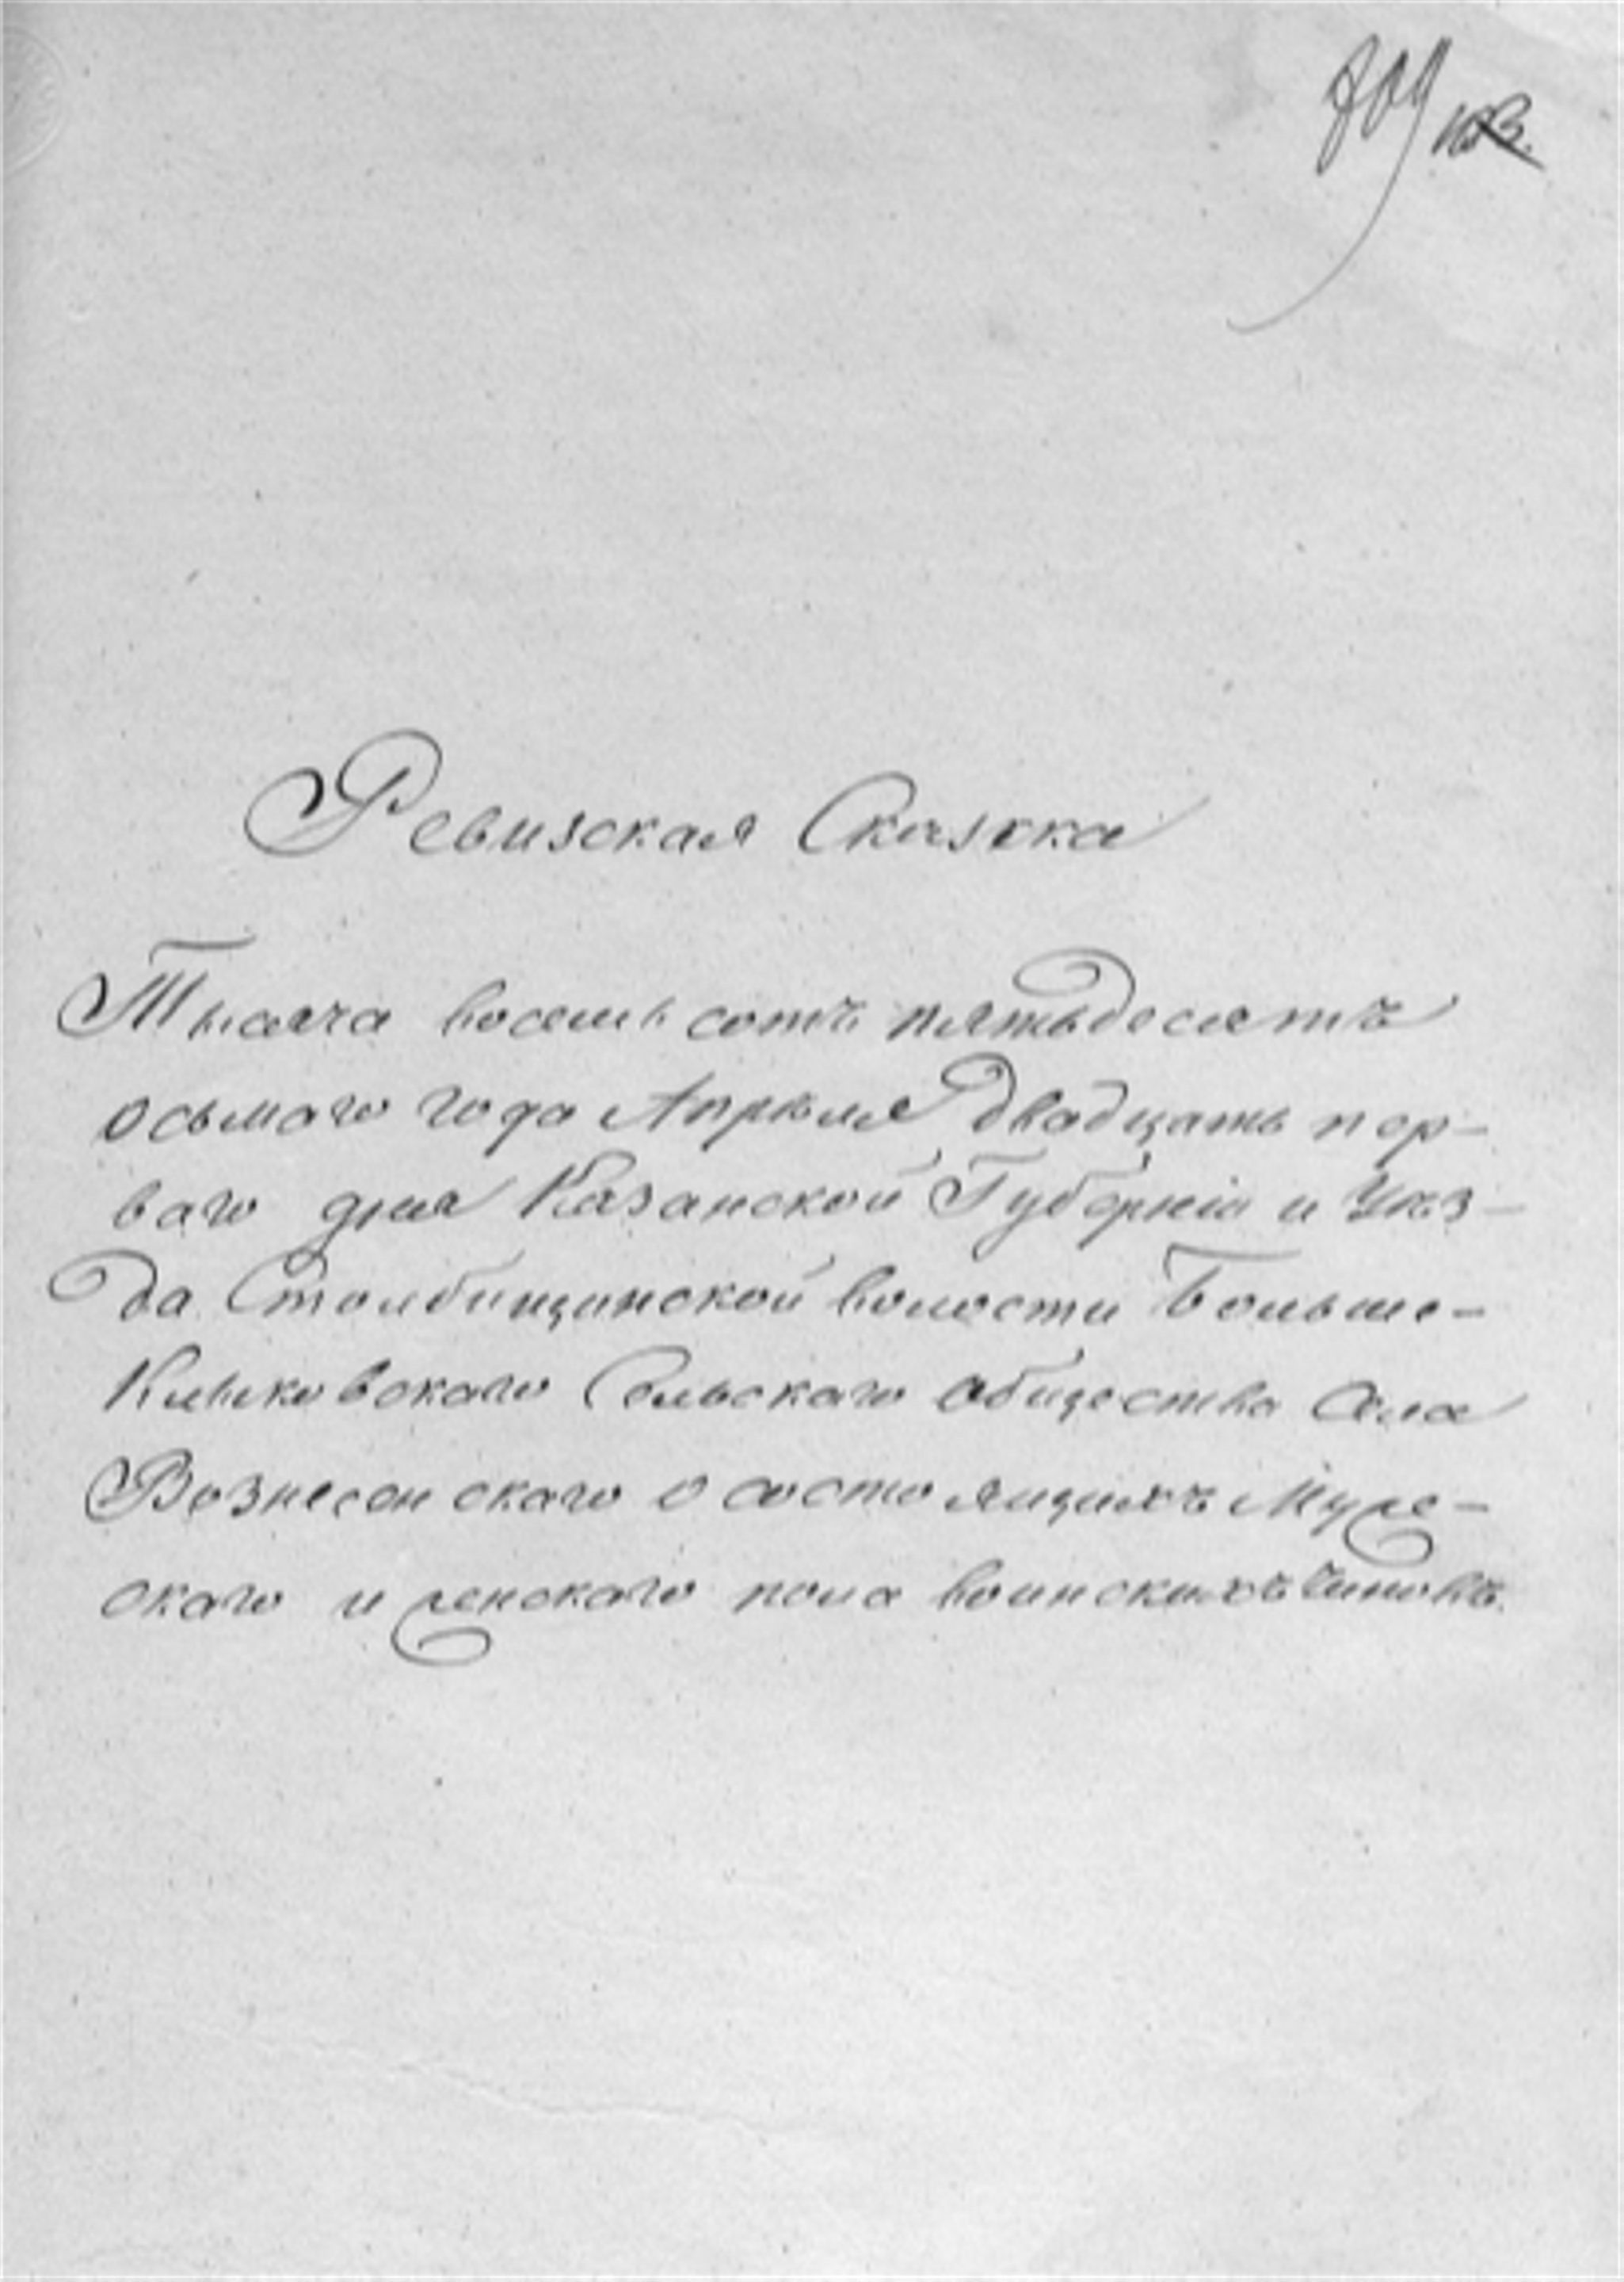 809
Ревизская Сказка
Тысяча восемь сотъ пятьдесятъ
осьмаго года Апрѣля двадцать пер-
ваго дня Казанской Губерніи и Уѣз-
да Столбищинской волости Больше-
Клыковскаго Сельскаго общества Села
Вознесенскаго о состоящихъ Муже-
скаго и женскаго пола воинскихъ чиновъ.